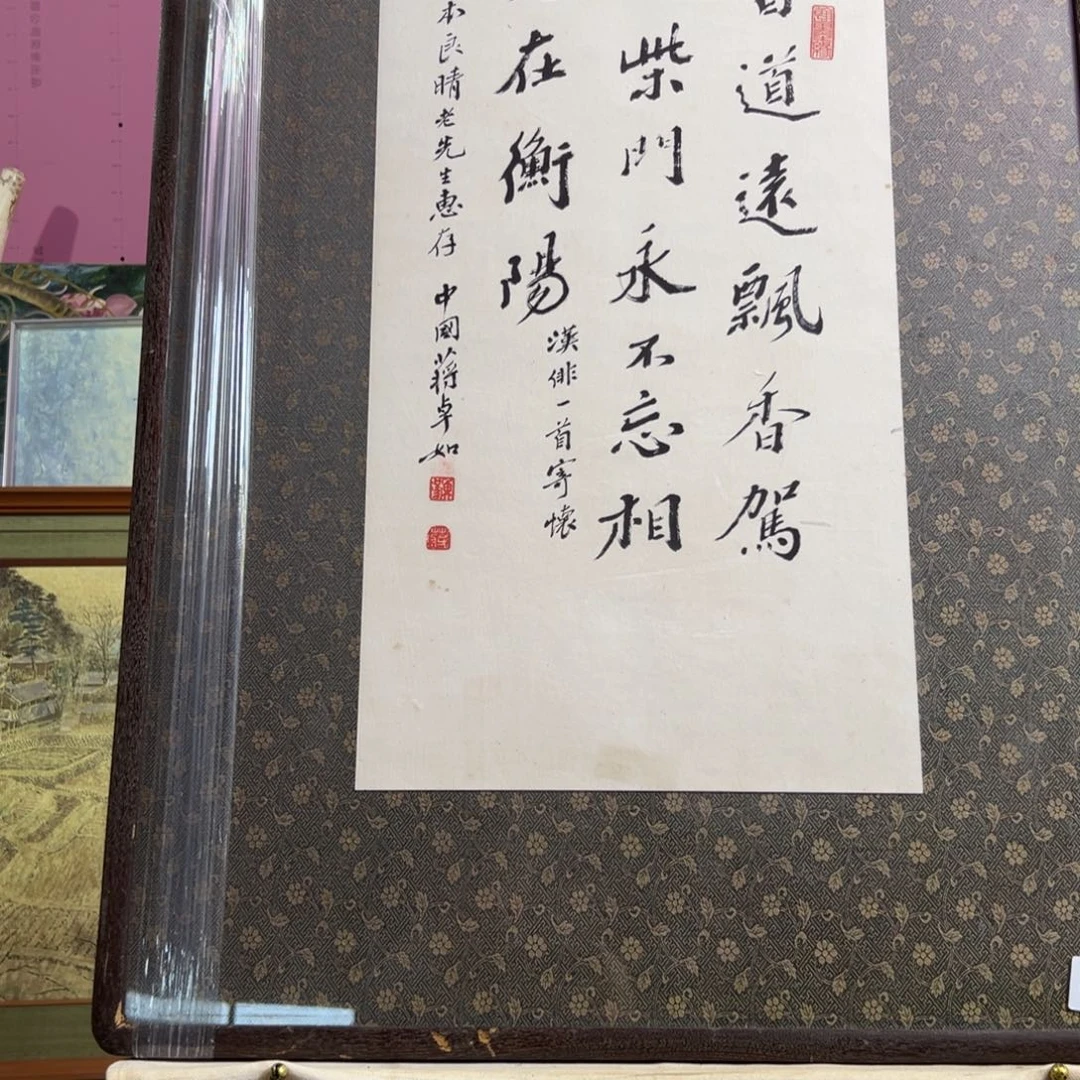 道遠飄香駕
柴門永不忘相
在衡陽
漢俳一首寄懷
本良晴老先生惠存 中國蔣卓如